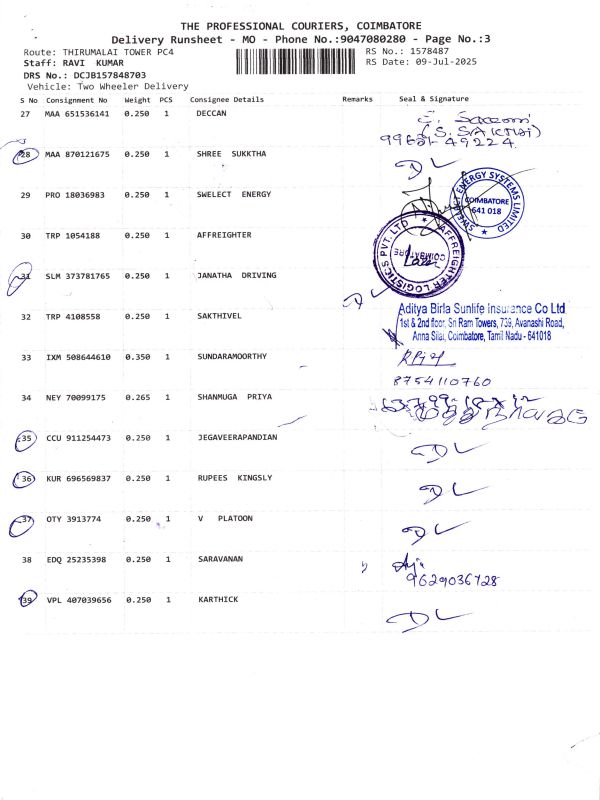 THE PROFESSIONAL COURIERS, COIMBATORE
Delivery Runsheet - MO - Phone No.:9047080280 - Page No.:3
Route: THIRUMALAI TOWER PC4 RS No.: 1578487
Staff: RAVI KUMAR RS Date: 09-Jul-2025
DRS No.: DCJB157848703
Vehicle: Two Wheeler Delivery
S No Consignment No Weight PCS Consignee Details Remarks Seal & Signature
27 MAA 651536141 0.250 1 DECCAN
(S. SAKTHI)
28 MAA 870121675 0.250 1 SHREE SUKKTHA DL
29 PRO 18036983 0.250 1 SWELECT ENERGY
SWELECT ENERGY SYSTEMS LIMITED
COIMBATORE
641 018
30 TRP 1054188 0.250 1 AFFREIGHTER
AFFREIGHTER LOGISTICS PVT. LTD
COIMBATORE
31 SLM 373781765 0.250 1 JANATHA DRIVING DL
32 TRP 4108558 0.250 1 SAKTHIVEL
Aditya Birla Sunlife Insurance Co Ltd
1st & 2nd floor, Sri Ram Towers, 739, Avanashi Road,
Anna Silai, Coimbatore, Tamil Nadu - 641018
33 IXM 508644610 0.350 1 SUNDARAMOORTHY
8754110760
34 NEY 70099175 0.265 1 SHANMUGA PRIYA
35 CCU 911254473 0.250 1 JEGAVEERAPANDIAN DL
36 KUR 696569837 0.250 1 RUPEES KINGSLY DL
37 OTY 3913774 0.250 1 V PLATOON DL
38 EDQ 25235398 0.250 1 SARAVANAN
9629036728
39 VPL 407039656 0.250 1 KARTHICK DL